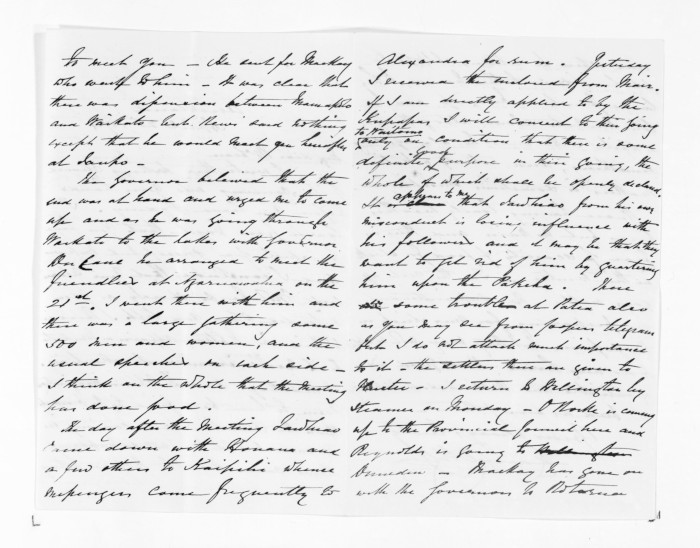 to meet you — He sent for Mackay
who went to him — It was clear that
there was dissension between Maniapoto
and Waikato but Rewi said nothing
except that he would meet you hereafter
at
The Governor believed that the
end was at hand and urged me to come
up and as he was going through
Waikato to the lakes with Governor
Du Cane he arranged to meet the
friendlies at Ngaruawahia on the
21st. I went there with him and
there was a large gathering some
500 men and women, and the
usual speeches on each side —
I think on the whole that the meeting
has done good.
The day after the meeting Tawhiao
came down with Honana and
a few others to Kaipiha whence
messengers come frequently to
Alexandra for rum. Yesterday
I received the enclosed from Mair.
If I am directly applied to by the
Kupapas I will consent to their going
to Waitomo
only on condition that there is some
good
definite purpose in their going, the
whole of which shall be openly declared.
appears to me
It is that Tawhiao from his own
misconduct is losing influence with
his followers and it may be that they
want to get rid of him by quartering
him upon the Pakeha. There
is some trouble at Patea also
as you may see from telegram
but I do not attach much importance
to it — the settlers there are given to
bluster. I return to Wellington by
steamer on Monday — O'Rorke is coming
up to the Provincial Council here and
Reynolds is going to Wellington
Dunedin — Mackay has gone on
with the Governors to Rotorua